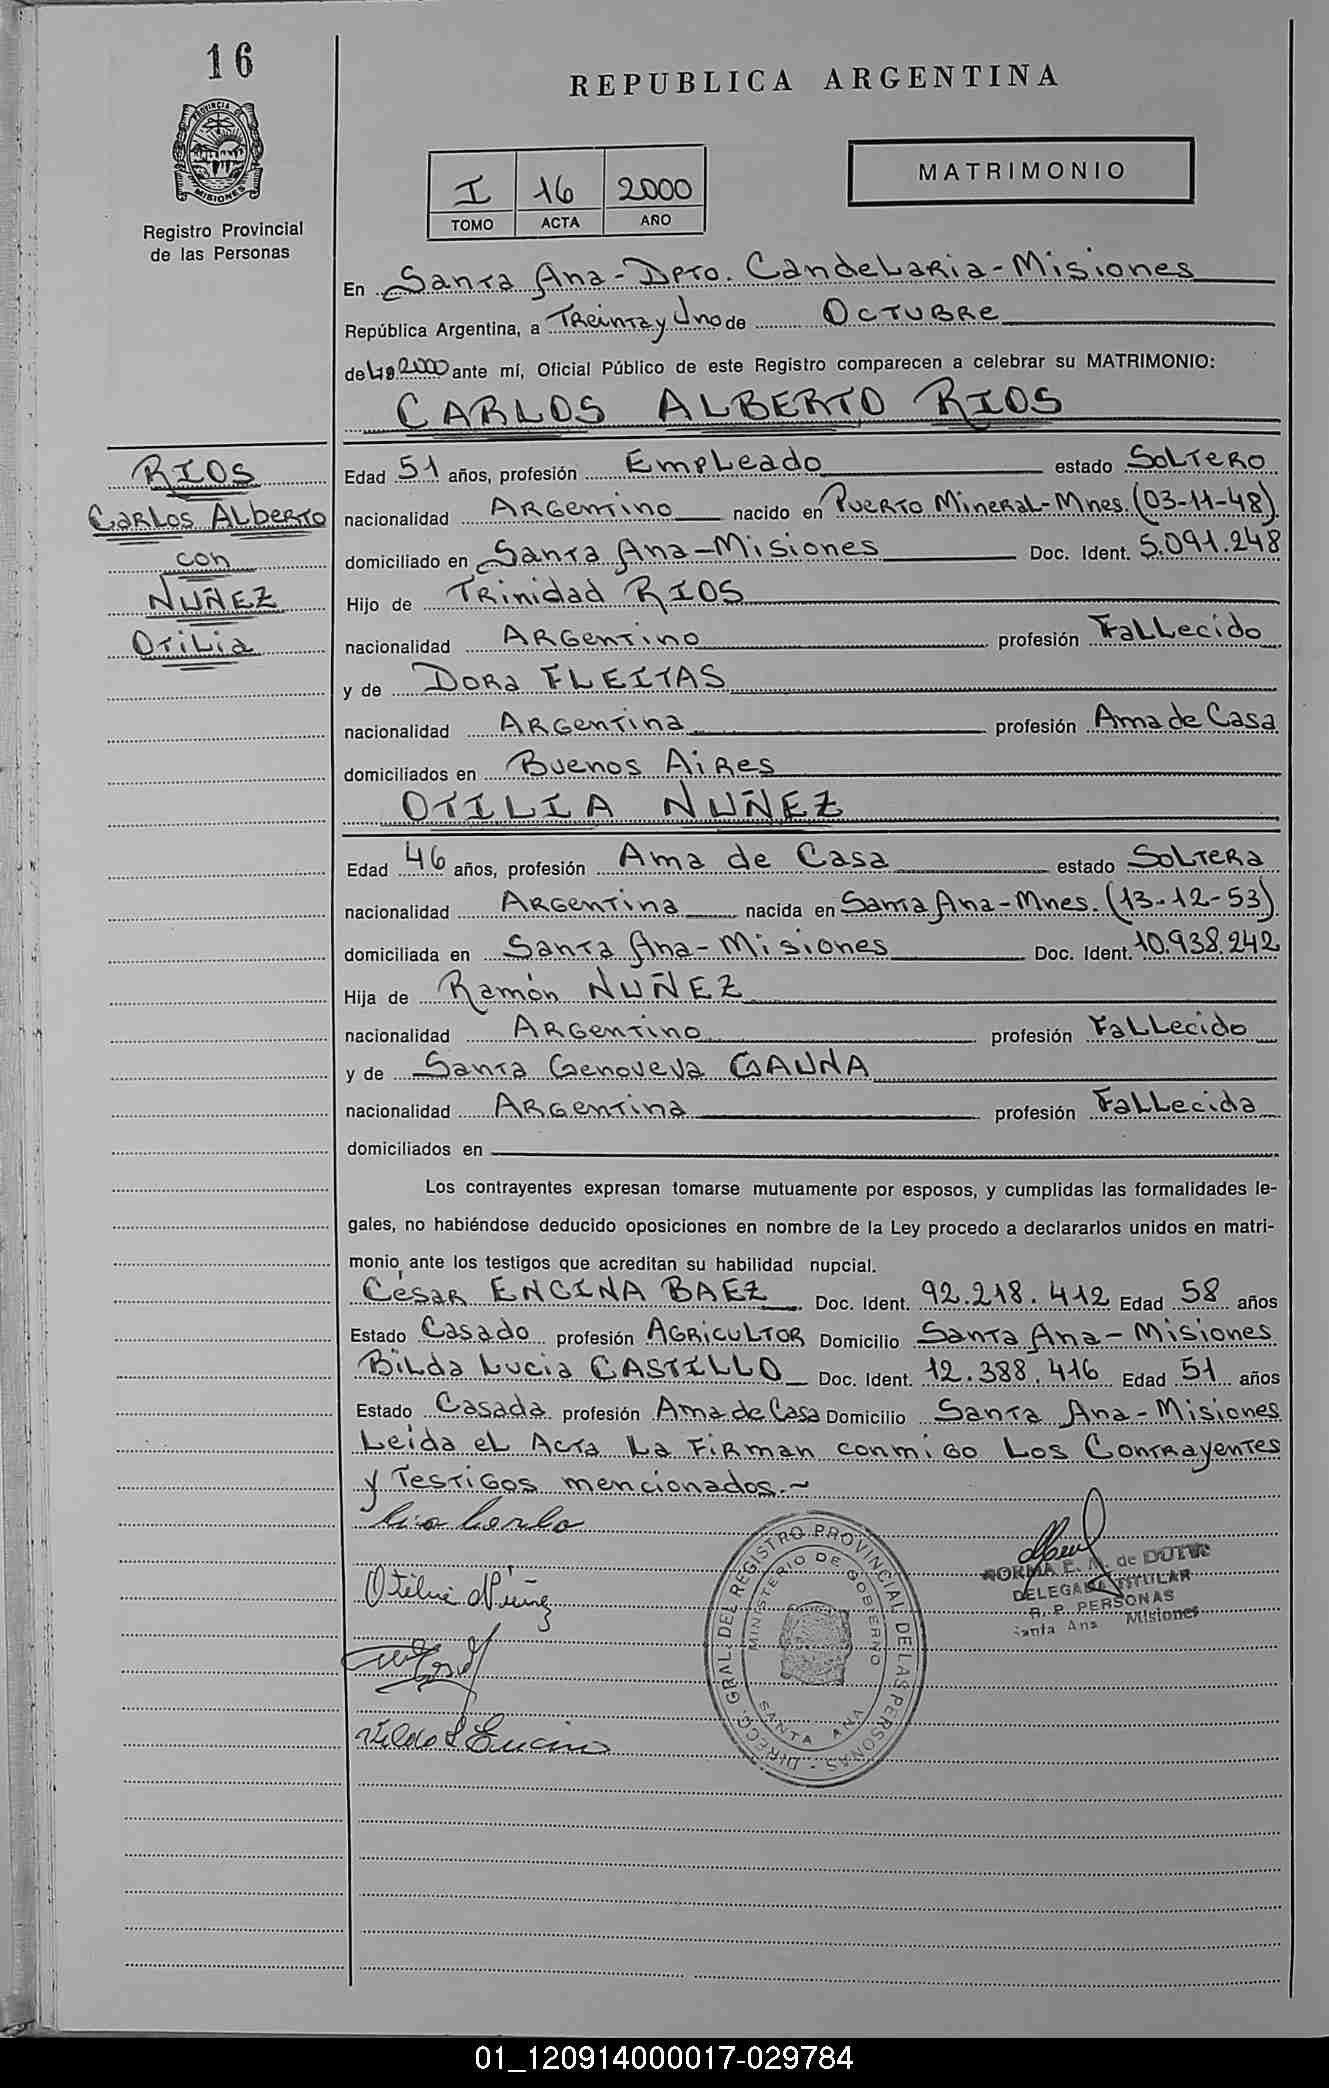 16
REPUBLICA ARGENTINA
PROVINCIA DE
MISIONES
Registro Provincial
de las Personas
I 16 2000
TOMO ACTA AÑO
MATRIMONIO
En Santa Ana - Dpto. Candelaria - Misiones
República Argentina, a Treinta y Uno de Octubre
del 2000 ante mí, Oficial Público de este Registro comparecen a celebrar su MATRIMONIO:
CARLOS ALBERTO RIOS
RIOS
Carlos Alberto
con
NUÑEZ
Otilia
Edad 51 años, profesión Empleado estado Soltero
nacionalidad Argentino nacido en Puerto Mineral - Mnes. (03-11-48)
domiciliado en Santa Ana - Misiones Doc. Ident. 5.091.248
Hijo de Trinidad RIOS
nacionalidad Argentino profesión Fallecido
y de Dora FLEITAS
nacionalidad Argentina profesión Ama de Casa
domiciliados en Buenos Aires
OTILIA NUÑEZ
Edad 46 años, profesión Ama de Casa estado Soltera
nacionalidad Argentina nacida en Santa Ana - Mnes. (13-12-53)
domiciliada en Santa Ana - Misiones Doc. Ident. 10.938.242
Hija de Ramón NUÑEZ
nacionalidad Argentino profesión Fallecido
y de Santa Genoveva GAUNA
nacionalidad Argentina profesión Fallecida
domiciliados en
Los contrayentes expresan tomarse mutuamente por esposos, y cumplidas las formalidades le-
gales, no habiéndose deducido oposiciones en nombre de la Ley procedo a declararlos unidos en matri-
monio ante los testigos que acreditan su habilidad nupcial.
César ENCINA BAEZ Doc. Ident. 92.218.412 Edad 58 años
Estado Casado profesión Agricultor Domicilio Santa Ana - Misiones
Bilda Lucia CASTILLO Doc. Ident. 12.388.416 Edad 51 años
Estado Casada profesión Ama de Casa Domicilio Santa Ana - Misiones
Leida el Acta La Firman conmigo Los Contrayentes
y Testigos mencionados.-
Otilia Núñez
DIRECC. GRAL. DEL REGISTRO PROVINCIAL DE LAS PERSONAS -
MINISTERIO DE GOBIERNO
SANTA ANA
NORMA E. de
DELEGADA TITULAR
R. P. PERSONAS
Santa Ana Misiones
01_120914000017-029784